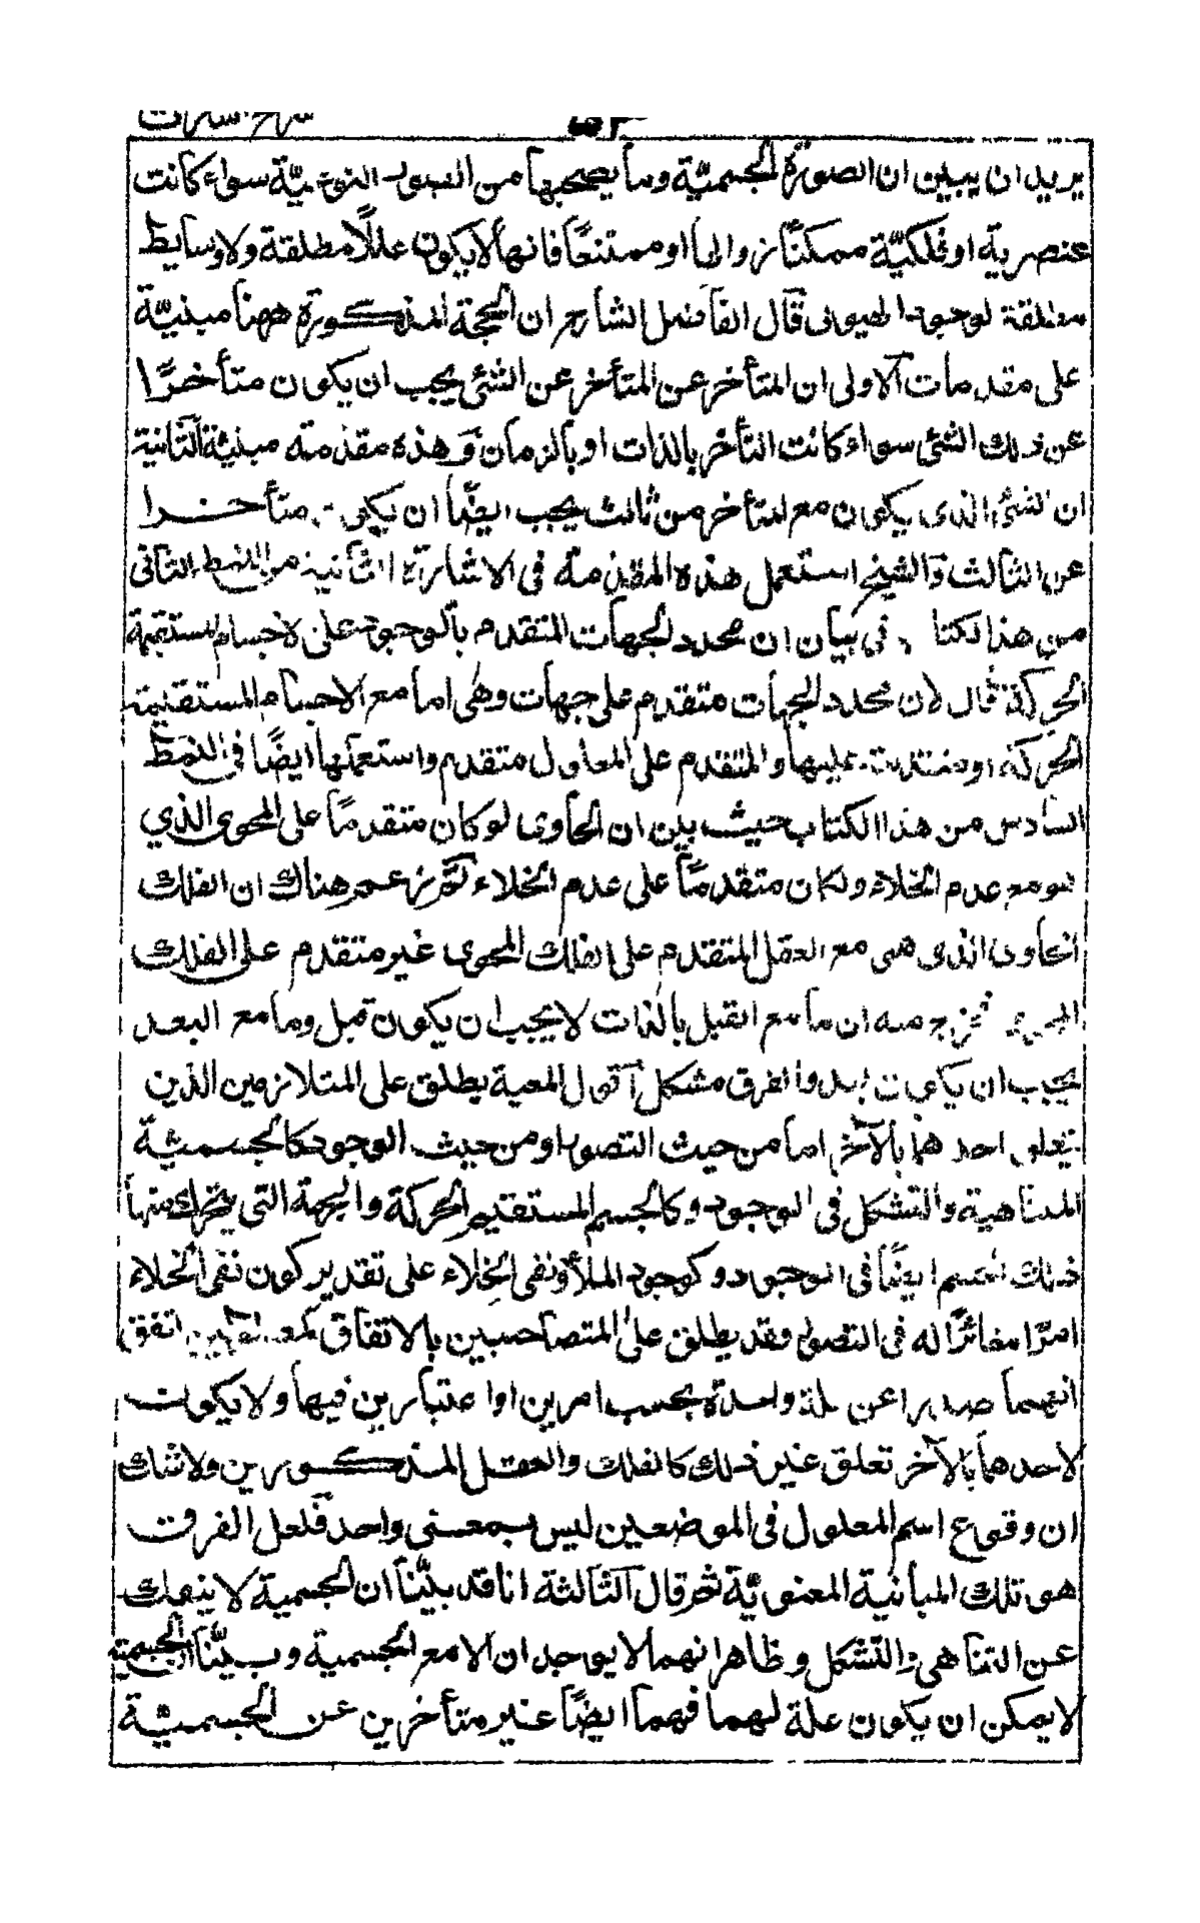 ٥٣
يريد ان يبين ان الصورة الجسميّة وما يصحبها من الصور النوعيّة سواء كانت
عنصرية او فلكيّة ممكنًا زوالها او ممتنعًا فانها لا يكون عللًا مطلقة ولا وسايط
مطلقة لوجود الهيولى قال الفاضل الشارح ان الحجة المذكورة ههنا مبنيّة
على مقدمات آلاولى ان المتأخر عن المتأخر عن الشئ يجب ان يكون متأخرًا
عن ذلك الشئ سواء كانت التأخر بالذات او بالزمان وَهذه مقدمته مبنيّة آلثانية
ان الشئ الذى يكون مع المتأخر من ثالث يجب ايضًا ان يكون متأخرا
عن الثالث وَالشيخ استعمل هذه المقدمة فى الاشارة الثانية من النمط الثانى
من هذا لكتا فى بيان ان محدد الجهات المتقدم بآلوجود على لاجسام المستقيمة
الحركة قال لان محدد الجهات متقدم على جهات وهى اما مع الاجسام المستقيمة
الحركة او متقدمة عليها والمتقدم على المعلول متقدم واستعملها ايضًا فى النمط
السادس من هذا الكتاب حيث بيّن ان الحاوى لو كان متقدمًا على المحوى الذي
هو مع عدم الخلاء ولكان متقدمًا على عدم الخلاء ثمّ زعم هناك ان الفلك
الحاوى الذى هى مع العقل المتقدم على الفلك المحوى غير متقدم على الفلك
المحوى فخرج منه ان ما مع القبل بالذات لا يجب ان يكون قبل وما مع البعد
يجب ان يكون بعد والفرق مشكل آقول المعية يطلق على المتلازمين الذين
يتعلق احدهما بالآخر اما من حيث التصور او من حيث الوجود كالجسميّة
المتناهية والتشكل فى الوجود وكالجسم المستقيم الحركة والجهة التى يتحرك منها
ذلك الجسم ايضًا فى الوجود وكوجود الملأ ونفى الخلاء على تقدير كون نفى الخلاء
امرًا مغائرًا له فى التصور وقد يطلق على المتصاحبين بالاتفاق اتفق
انهما صدرا عن علة واحدة بحسب امرين او اعتبارين فيها ولا يكون
لاحدهما بالآخر تعلق غير ذلك كالفلك والعقل المذكورين ولا شك
ان وقوع اسم المعلول فى الموضعين ليس بمعنى واحد فَلعل الفرق
هو تلك المباينة المعنويّة ثم قال آلثالثة انا قد بيّنا ان الجسمية لا ينفك
عن التناهى والتشكل وظاهر انهما لا يوجد ان الا مع الجسمية وبيّنا ان الجسمية
لا يمكن ان يكون علة لهما فهما ايضًا غير متأخرين عن الجسميّة